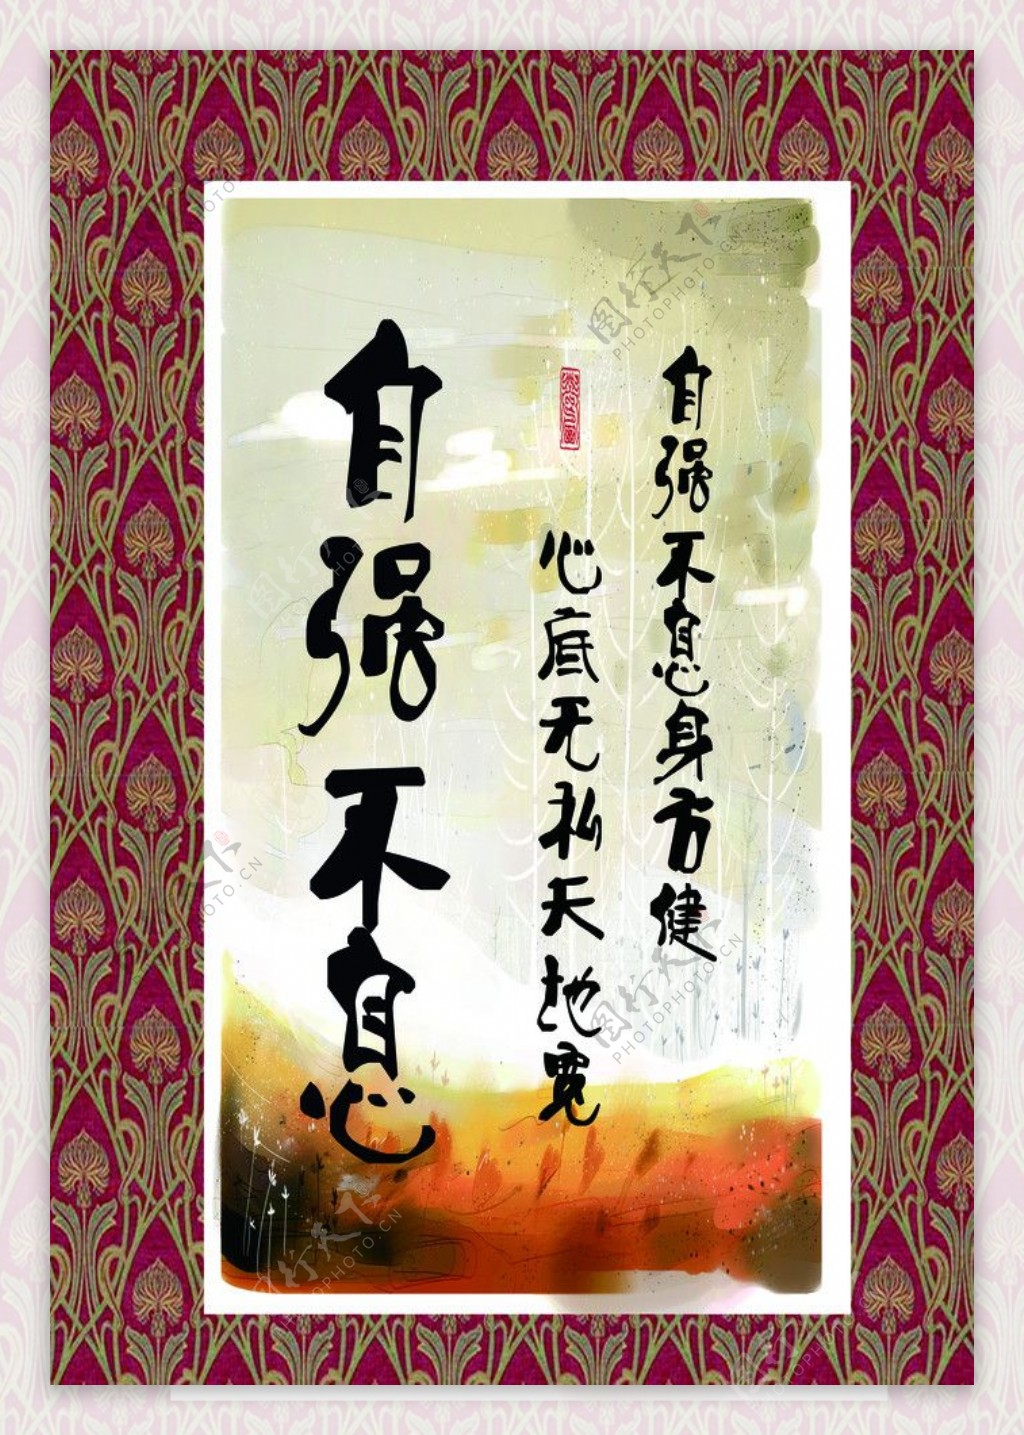 自强不息身方健
心底无私天地宽
自强不息
图行天下
PHOTOPHOTO.CN